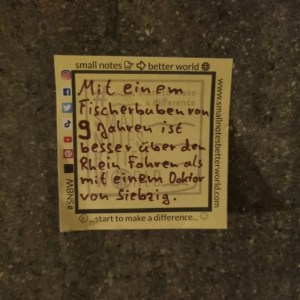 small notes better world
Mit einem
Fischerbuben von
9 Jahren ist
besser über den
Rhein Fahren als
mit einem Doktor
von Siebzig.
...start to make a difference...
#SNBW
www.smallnotesbetterworld.com